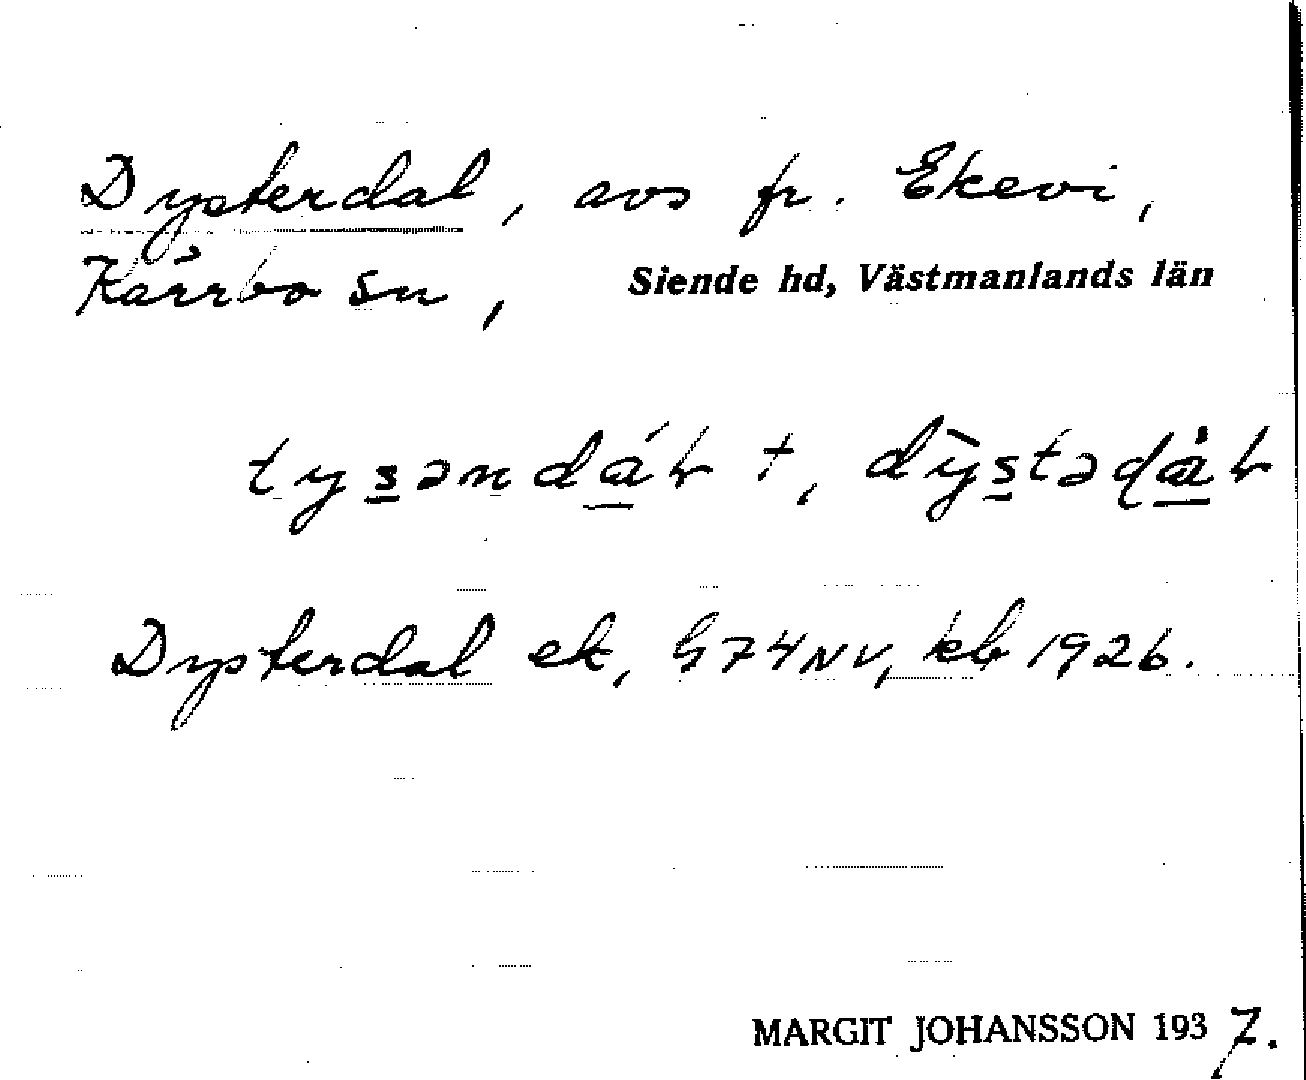 Dysterdal, avs fr. Ekevi,
Kärrbo sn, Siende hd, Västmanlands län
Dysterdal ek, G74NV, kb 1926.
MARGIT JOHANSSON 1937.